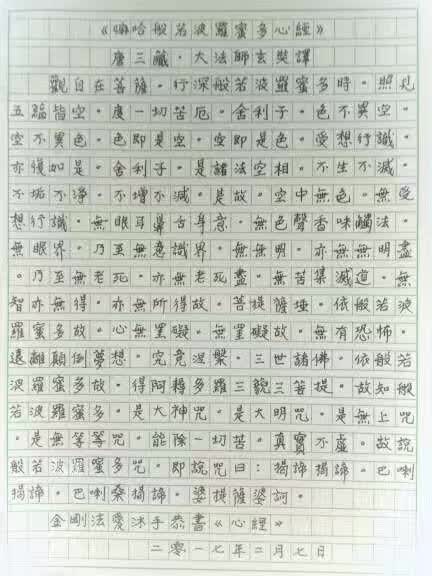 《嘛哈般若波羅蜜多心經》
唐三藏。大法師玄奘譯
觀自在菩薩。行深般若波羅蜜多時。照見
五蘊皆空。度一切苦厄。舍利子。色不異空。
空不異色。色即是空。空即是色。受想行識。
亦復如是。舍利子。是諸法空相。不生不滅。
不垢不淨。不增不減。是故。空中無色。無受
想行識。無眼耳鼻舌身意。無色聲香味觸法。
無眼界。乃至無意識界。無無明。亦無無明盡
。乃至無老死。亦無老死盡。無苦集滅道。無
智亦無得。亦無所得故。菩提薩埵。依般若波
羅蜜多故。心無罣礙。無罣礙故。無有恐怖。
遠離顛倒夢想。究竟涅槃。三世諸佛。依般若
波羅蜜多故。得阿耨多羅三藐三菩提。故知般
若波羅蜜多。是大神咒。是大明咒。是無上咒
。是無等等咒。能除一切苦。真實不虛。故說
般若波羅蜜多咒。即說咒曰：揭諦揭諦。巴喇
揭諦。巴喇桑揭諦。婆提薩婆訶。
金剛法愛沐手恭書《心經》
二零一七年二月七日